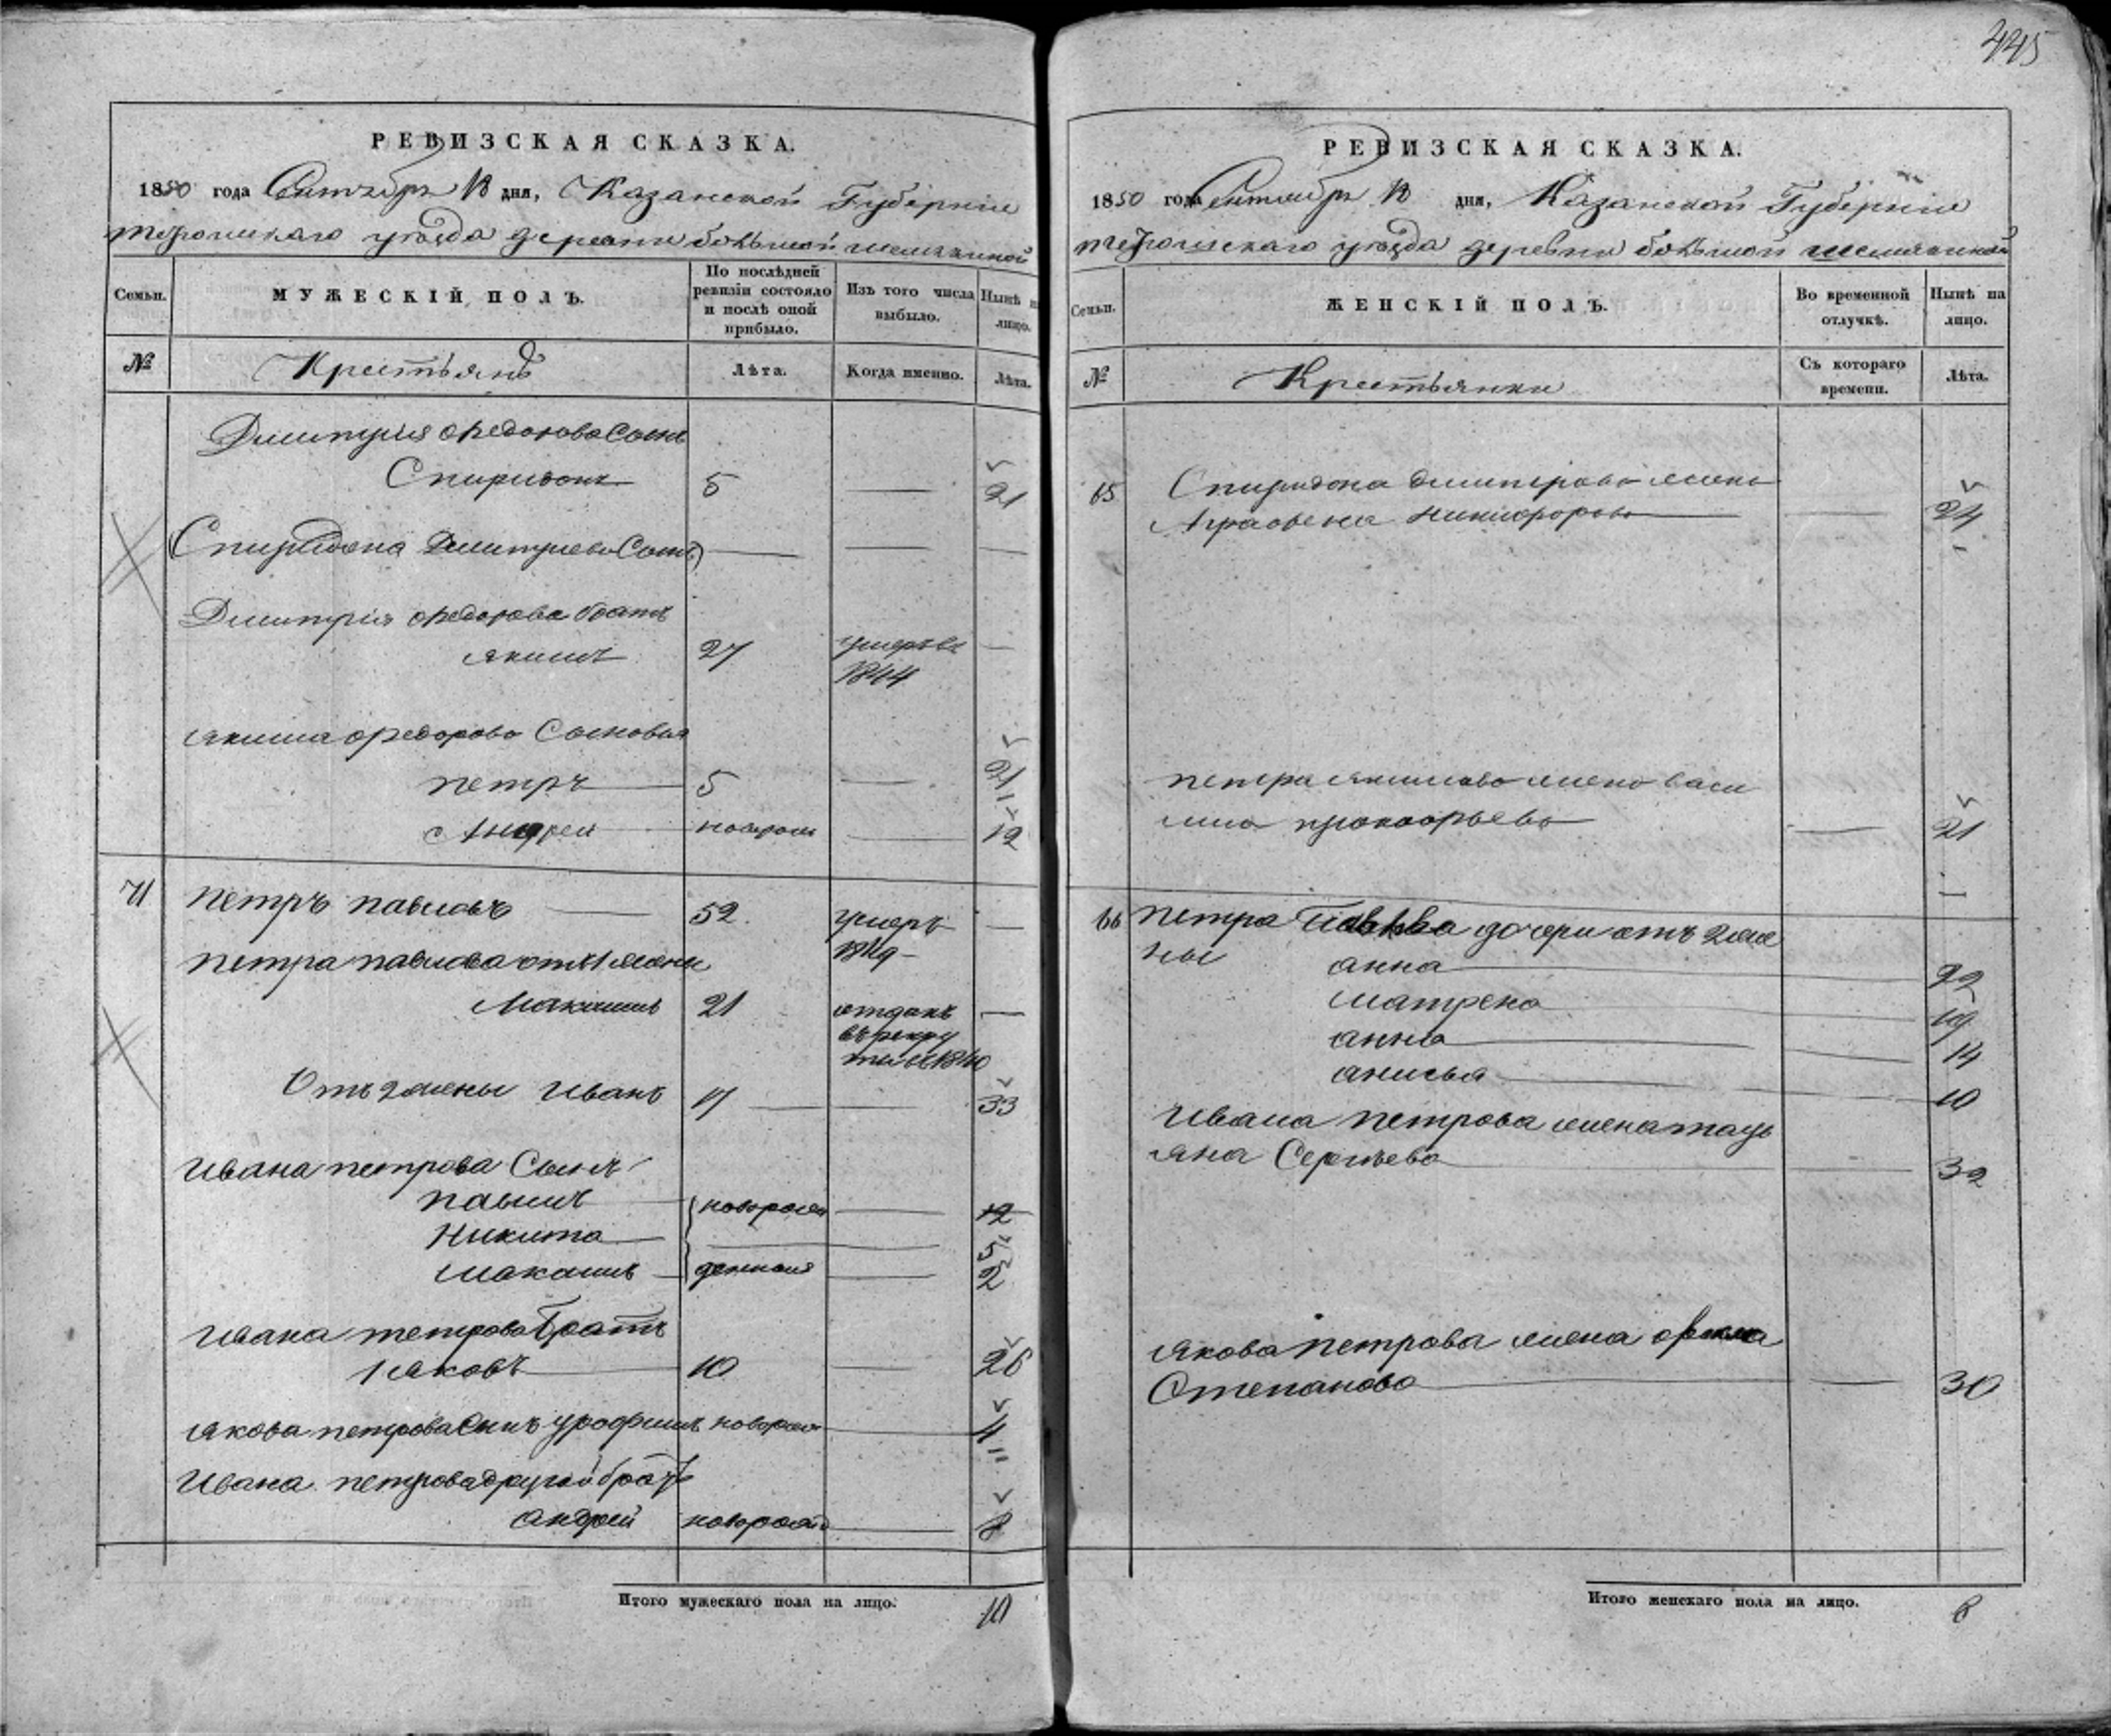 РЕВИЗСКАЯ СКАЗКА.
1850 года Сентября 18 дня, Казанской Губернии
уезда деревни большой
Семьи.
МУЖЕСКІЙ ПОЛЪ.
По послѣдней ревизіи состояло и послѣ оной прибыло.
Изъ того числа выбыло.
Нынѣ на лицо.
№
Крестьянъ
Лѣта.
Когда именно.
Лѣта.
Димитрия Федорова Сынъ
Спиридонъ 5 — 21
(Спиридона Дмитриева Сынъ) — — —
Димитрия Федорова братъ
якимъ 27 умеръ в 1844 —
якима федорова Сыновья
петръ 5 — 21
Андреи новорож — 12
71 петръ павловъ — 52 умеръ —
петра павлова отъ 1 жены 1849
Максимъ 21 отданъ в рекруты в 1840 —
Отъ 2 жены Иванъ 17 — 33
Ивана петрова Сынъ
павилъ новорож — 12
Никита — — 5
Максимъ денныя — 2
Ивана петрова братъ
Яковъ 10 — 26
якова петрова Сынъ новорож — 4
Ивана петрова другой братъ
андрей новорожд — 8
Итого мужескаго пола на лицо. 10
445
РЕВИЗСКАЯ СКАЗКА.
1850 года Сентября 18 дня, Казанской Губернии
уезда деревни большой
Семьи.
ЖЕНСКІЙ ПОЛЪ.
Во временной отлучкѣ.
Нынѣ на лицо.
№
Крестьянки
Съ котораго времени.
Лѣта.
65 Спиридона димитрова жена
Аграфена никифорова — 24
петра якимова жена васи
лиса прокофьева — 21
66 петра Павлова дочери отъ 2 же
ны анна 22
матрена 19
анна 14
анисья 10
Ивана петрова жена тать
яна Сергеева 32
якова петрова жена
Степанова — 30
Итого женскаго пола на лицо. 8